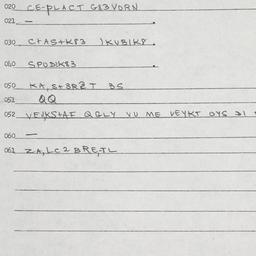 020 CE-PLACT G83VORN
021 –
030 C+AS+K83 )KUBIK8.
040 SPUDIK83
050 KA,S+3R2T 3S
051 QQ
052 VEYKS+AF QGLY VU ME VEYKT OYS 21
060 –
061 ZA,LC2BRE,TL